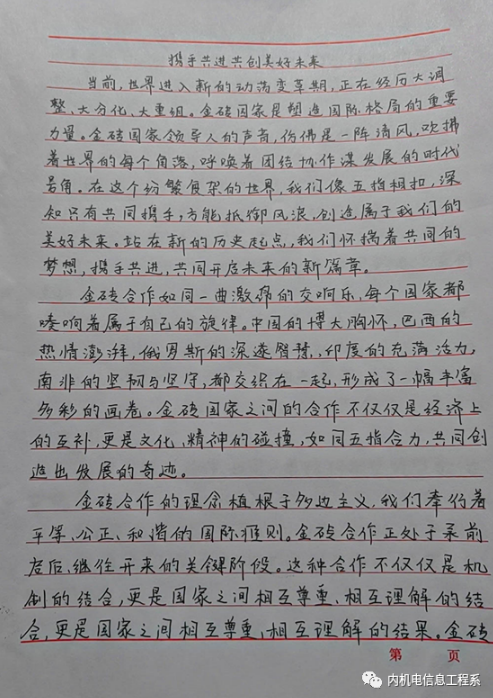 携手共进共创美好未来
当前,世界进入新的动荡变革期,正在经历大调
整、大分化、大重组。金砖国家是塑造国际格局的重要
力量。金砖国家领导人的声音,仿佛是一阵清风,吹拂
着世界的每个角落,呼唤着团结协作谋发展的时代
号角。在这个纷繁复杂的世界,我们像五指相扣,深
知只有共同携手,方能抵御风浪,创造属于我们的
美好未来。站在新的历史起点,我们怀揣着共同的
梦想,携手共进,共同开启未来的新篇章。
金砖合作如同一曲激昂的交响乐,每个国家都
奏响着属于自己的旋律。中国的博大胸怀,巴西的
热情澎湃,俄罗斯的深邃智慧,印度的充满活力,
南非的坚韧与坚守,都交织在一起,形成了一幅丰富
多彩的画卷。金砖国家之间的合作不仅仅是经济上
的互补,更是文化、精神的碰撞,如同五指合力,共同创
造出发展的奇迹。
金砖合作的理念植根于多边主义,我们奉行着
平等、公正、和谐的国际准则。金砖合作正处于承前
启后、继往开来的关键阶段。这种合作不仅仅是机
制的结合,更是国家之间相互尊重、相互理解的结
合,更是国家之间相互尊重、相互理解的结果。金砖
第 页
内机电信息工程系